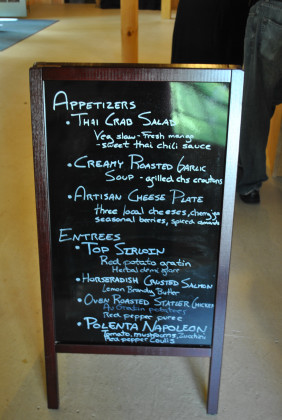 APPETIZERS
• THAI CRAB SALAD
Veg slaw - fresh mango
- sweet thai chili sauce
• CREAMY ROASTED GARLIC
SOUP - grilled chs croutons
• ARTISAN CHEESE PLATE
three local cheeses,
seasonal berries, spiced almonds
ENTREES
• TOP SIRLOIN
Red potato gratin
Herbal demi glace
• HORSERADISH CRUSTED SALMON
Lemon Brandy Butter
• OVEN ROASTED STATLER CHICKEN
Au Gratin potatoes
Red pepper puree
• POLENTA NAPOLEON
Tomato, mushrooms, Zucchini
Red pepper Coulis